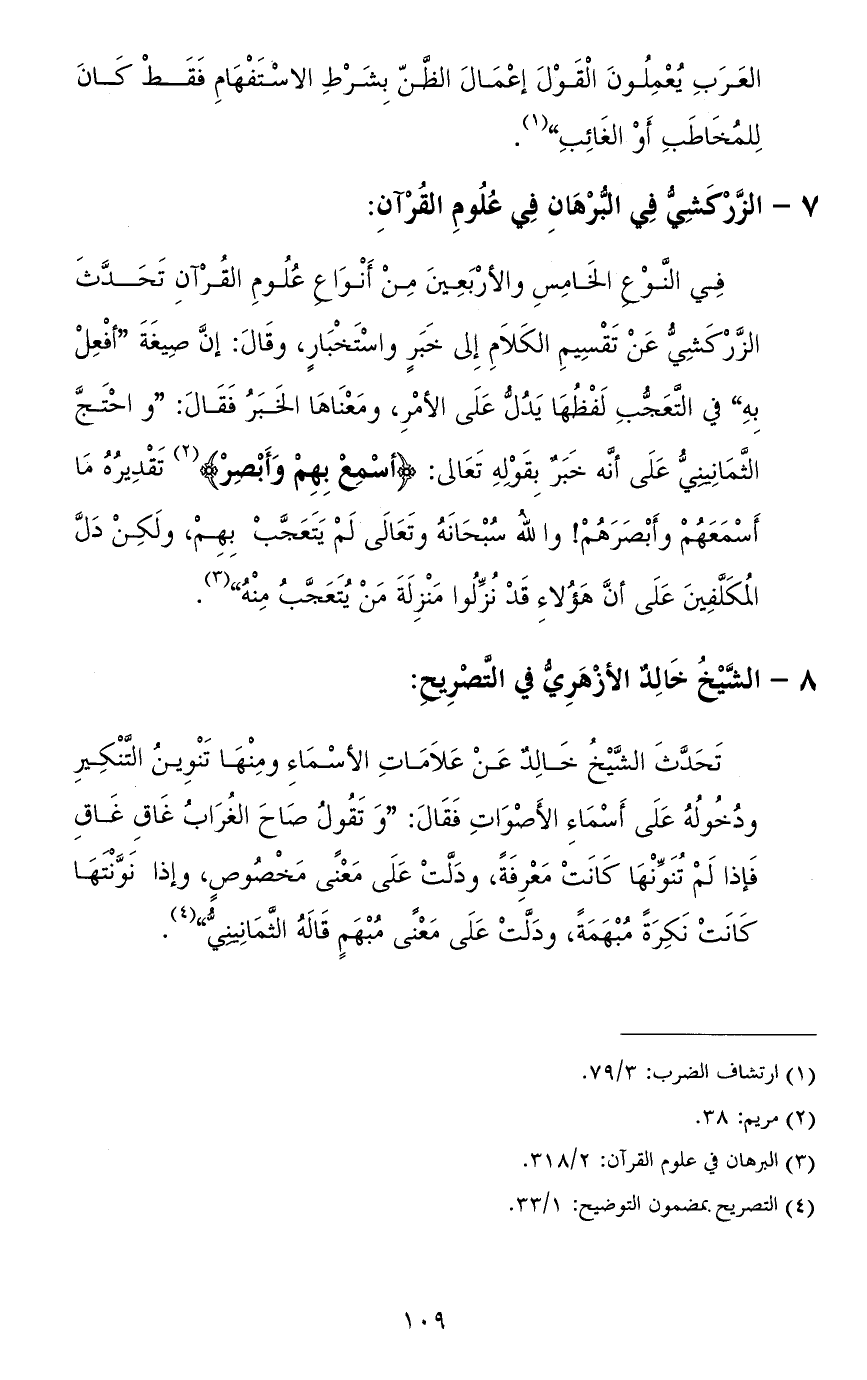 العَرَبِ يُعْمِلُونَ الْقَوْلَ إعْمَالَ الظَّنّ بِشَرْطِ الاسْتَفْهَامِ فَقَطْ كَانَ
لِلمُخَاطَبِ أوْ الغَائِبِ“(١).
٧ – الزَّرْكَشِيُّ فِي البُرْهَانِ فِي عُلُومِ القُرْآنِ:
فِي النَّوْعِ الخَامِسِ والأرْبَعِينَ مِنْ أنْوَاعِ عُلُومِ القُرْآنِ تَحَدَّثَ
الزَّرْكَشِيُّ عَنْ تَقْسِيمِ الكَلاَمِ إلى خَبَرٍ واسْتَخْبَارٍ، وقَالَ: إنَّ صِيغَةَ ”أفْعِلْ
بِهِ“ في التَّعَجُّبِ لَفْظُهَا يَدُلُّ عَلَى الأمْرِ، ومَعْنَاهَا الخَبَرُ فَقَالَ: ”و احْتَجَّ
الثَّمَانِينِيُّ عَلَى أنَّه خَبَرٌ بِقَوْلِهِ تَعَالى: ﴿أسْمِعْ بِهِمْ وَأَبْصِرْ﴾(٢) تَقْدِيرُهُ مَا
أسْمَعَهُمْ وأَبْصَرَهُمْ! والله سُبْحَانَهُ وتَعَالَى لَمْ يَتَعَجَّبْ بِهِمْ، ولَكِنْ دَلَّ
المُكَلَّفِينَ عَلَى أنَّ هَؤُلاءِ قَدْ نُزِّلُوا مَنْزِلَةَ مَنْ يُتَعَجَّبُ مِنْهُ“(٣).
٨ – الشَّيْخُ خَالِدٌ الأزْهَرِيُّ في التَّصْرِيحِ:
تَحَدَّثَ الشَّيْخُ خَالِدٌ عَنْ عَلاَمَاتِ الأسْمَاءِ ومِنْهَا تَنْوِينُ التَّنْكِيرِ
ودُخُولُهُ عَلَى أَسْمَاءِ الأَصْوَاتِ فَقَالَ: ”وَ تَقُولُ صَاحَ الغُرَابُ غَاقِ غَاقِ
فَإذا لَمْ تُنَوِّنْهَا كَانَتْ مَعْرِفَةً، ودَلَّتْ عَلَى مَعْنًى مَخْصُوصٍ، وإذا نَوَّنْتَهَا
كَانَتْ نَكِرَةً مُبْهَمَةً، ودَلَّتْ عَلَى مَعْنًى مُبْهَمٍ قَالَهُ الثَّمَانِينِيُّ“(٤).
(١) ارتشاف الضرب: ٧٩/٣.
(٢) مريم: ٣٨.
(٣) البرهان في علوم القرآن: ٣١٨/٢.
(٤) التصريح بمضمون التوضيح: ٣٣/١.
١٠٩